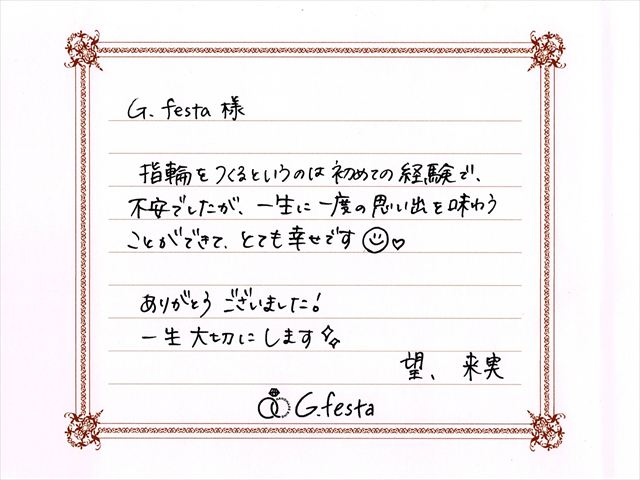 G. festa 様
指輪をつくるというのは初めての経験で、
不安でしたが、一生に一度の思い出を味わう
ことができて、とても幸せです☺♡
ありがとうございました!
一生大切にします
望、来実
G.festa